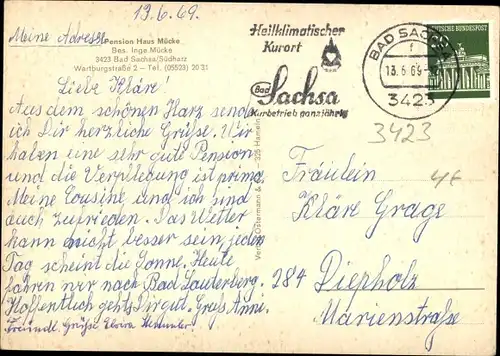 13.6.69.
Meine Adresse
Pension Haus Mücke
Bes. Inge Mücke
3423 Bad Sachsa/Südharz
Wartburgstraße 2 – Tel. (05523) 20 31
Heilklimatischer
Kurort
Bad
Sachsa
Kurbetrieb ganzjährig
BAD SACHSA
13.6.69
3423
DEUTSCHE BUNDESPOST
3423
Liebe Kläre!
Aus dem schönen Harz sende
ich Dir herzliche Grüße. Wir
haben eine sehr gute Pension
und die Verpflegung ist prima
Meine Cousine und ich sind
auch zufrieden. Das Wetter
kann nicht besser sein, jeden
Tag scheint die Sonne. Heute
fahren wir nach Bad Lauterberg.
Hoffentlich gehts Dir gut. Gruß Anni.
Freundl. Grüße Elvira
Verlag Ostermann & 325 Hameln
Fräulein
Kläre Grage
284 Diepholz
Marienstraße